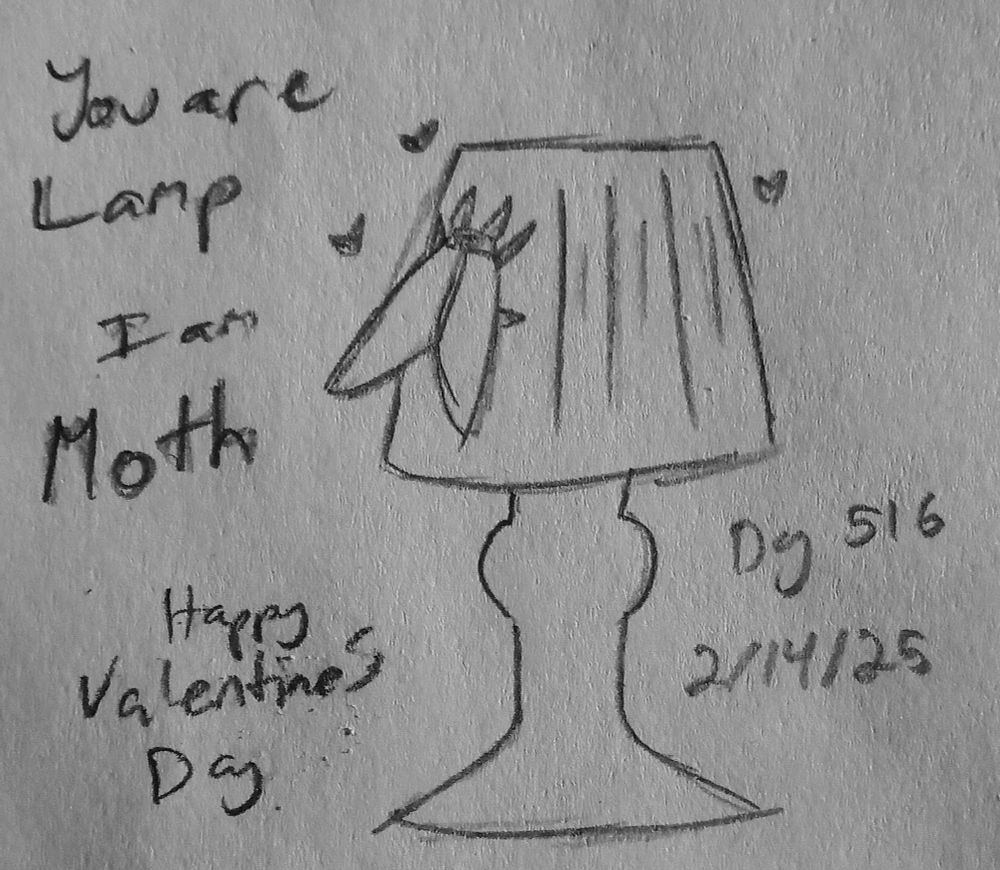 You are
Lamp
I am
Moth
Happy
Valentines
Day
Dg 516
2/14/25